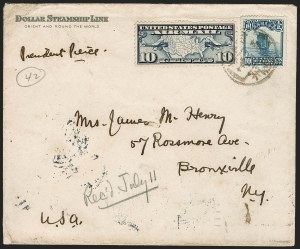 DOLLAR STEAMSHIP LINE
ORIENT AND ROUND THE WORLD
President Pierce
42
10 10
Mrs. James M. Henry
57 Rossmore Ave.
Bronxville
N.Y.
Rec'd July 11
U.S.A.